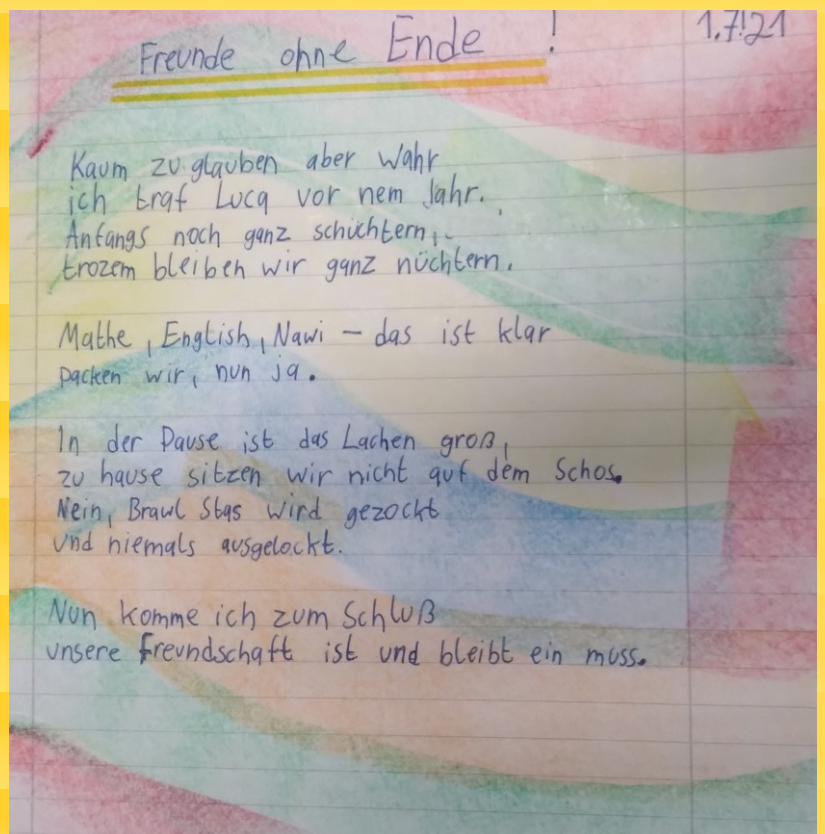 Freunde ohne Ende !
1.7!21
Kaum zu glauben aber Wahr
ich traf Luca vor nem Jahr.
Anfangs noch ganz schüchtern,
trozem bleiben wir ganz nüchtern.
Mathe, English, Nawi – das ist klar
packen wir, nun ja.
In der Pause ist das Lachen groß,
zu hause sitzen wir nicht auf dem Schos.
Nein, Brawl Stas wird gezockt
und niemals ausgelockt.
Nun komme ich zum Schluß
unsere Freundschaft ist und bleibt ein muss.